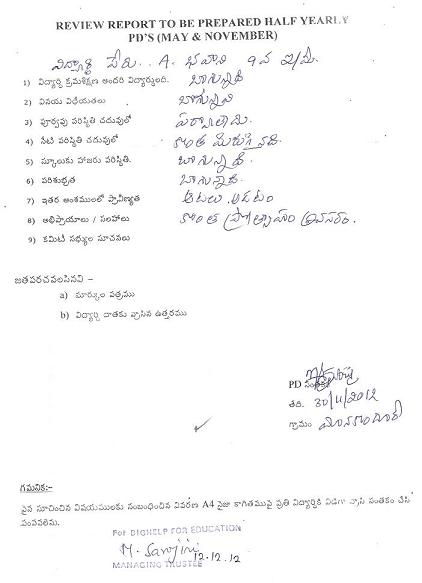 REVIEW REPORT TO BE PREPARED HALF YEARLY
PD'S (MAY & NOVEMBER)
విద్యార్థి పేరు.. A. భవాని 9వ
1) విద్యార్థి క్రమశిక్షణ అందరి విద్యార్థులది. బాగున్నది
2) వినయ విధేయతలు బాగున్నవి
3) పూర్వపు పరిస్థితి చదువులో
4) నేటి పరిస్థితి చదువులో కొంత మెరుగైనది
5) స్కూలుకు హాజరు పరిస్థితి. బాగున్నది
6) పరిశుభ్రత బాగున్నది
7) ఇతర అంశములలో ప్రావీణ్యత ఆటలు ఆడటం
8) అభిప్రాయాలు / సలహాలు కొంత ప్రోత్సాహం అవసరం.
9) కమిటీ సభ్యుల సూచనలు
జతపరచవలసినవి –
a) మార్కుల పత్రము
b) విద్యార్థి దాతకు వ్రాసిన ఉత్తరము
PD సంతకం
తేది. 30/11/2012
గ్రామం
గమనిక:–
పైన సూచించిన విషయములకు సంబంధించిన వివరణ A4 సైజు కాగితముపై ప్రతి విద్యార్థికి విడిగా వ్రాసి సంతకం చేసి
పంపవలెను.
For DIGHELP FOR EDUCATION
M. Sarojini 12.12.12
MANAGING TRUSTEE